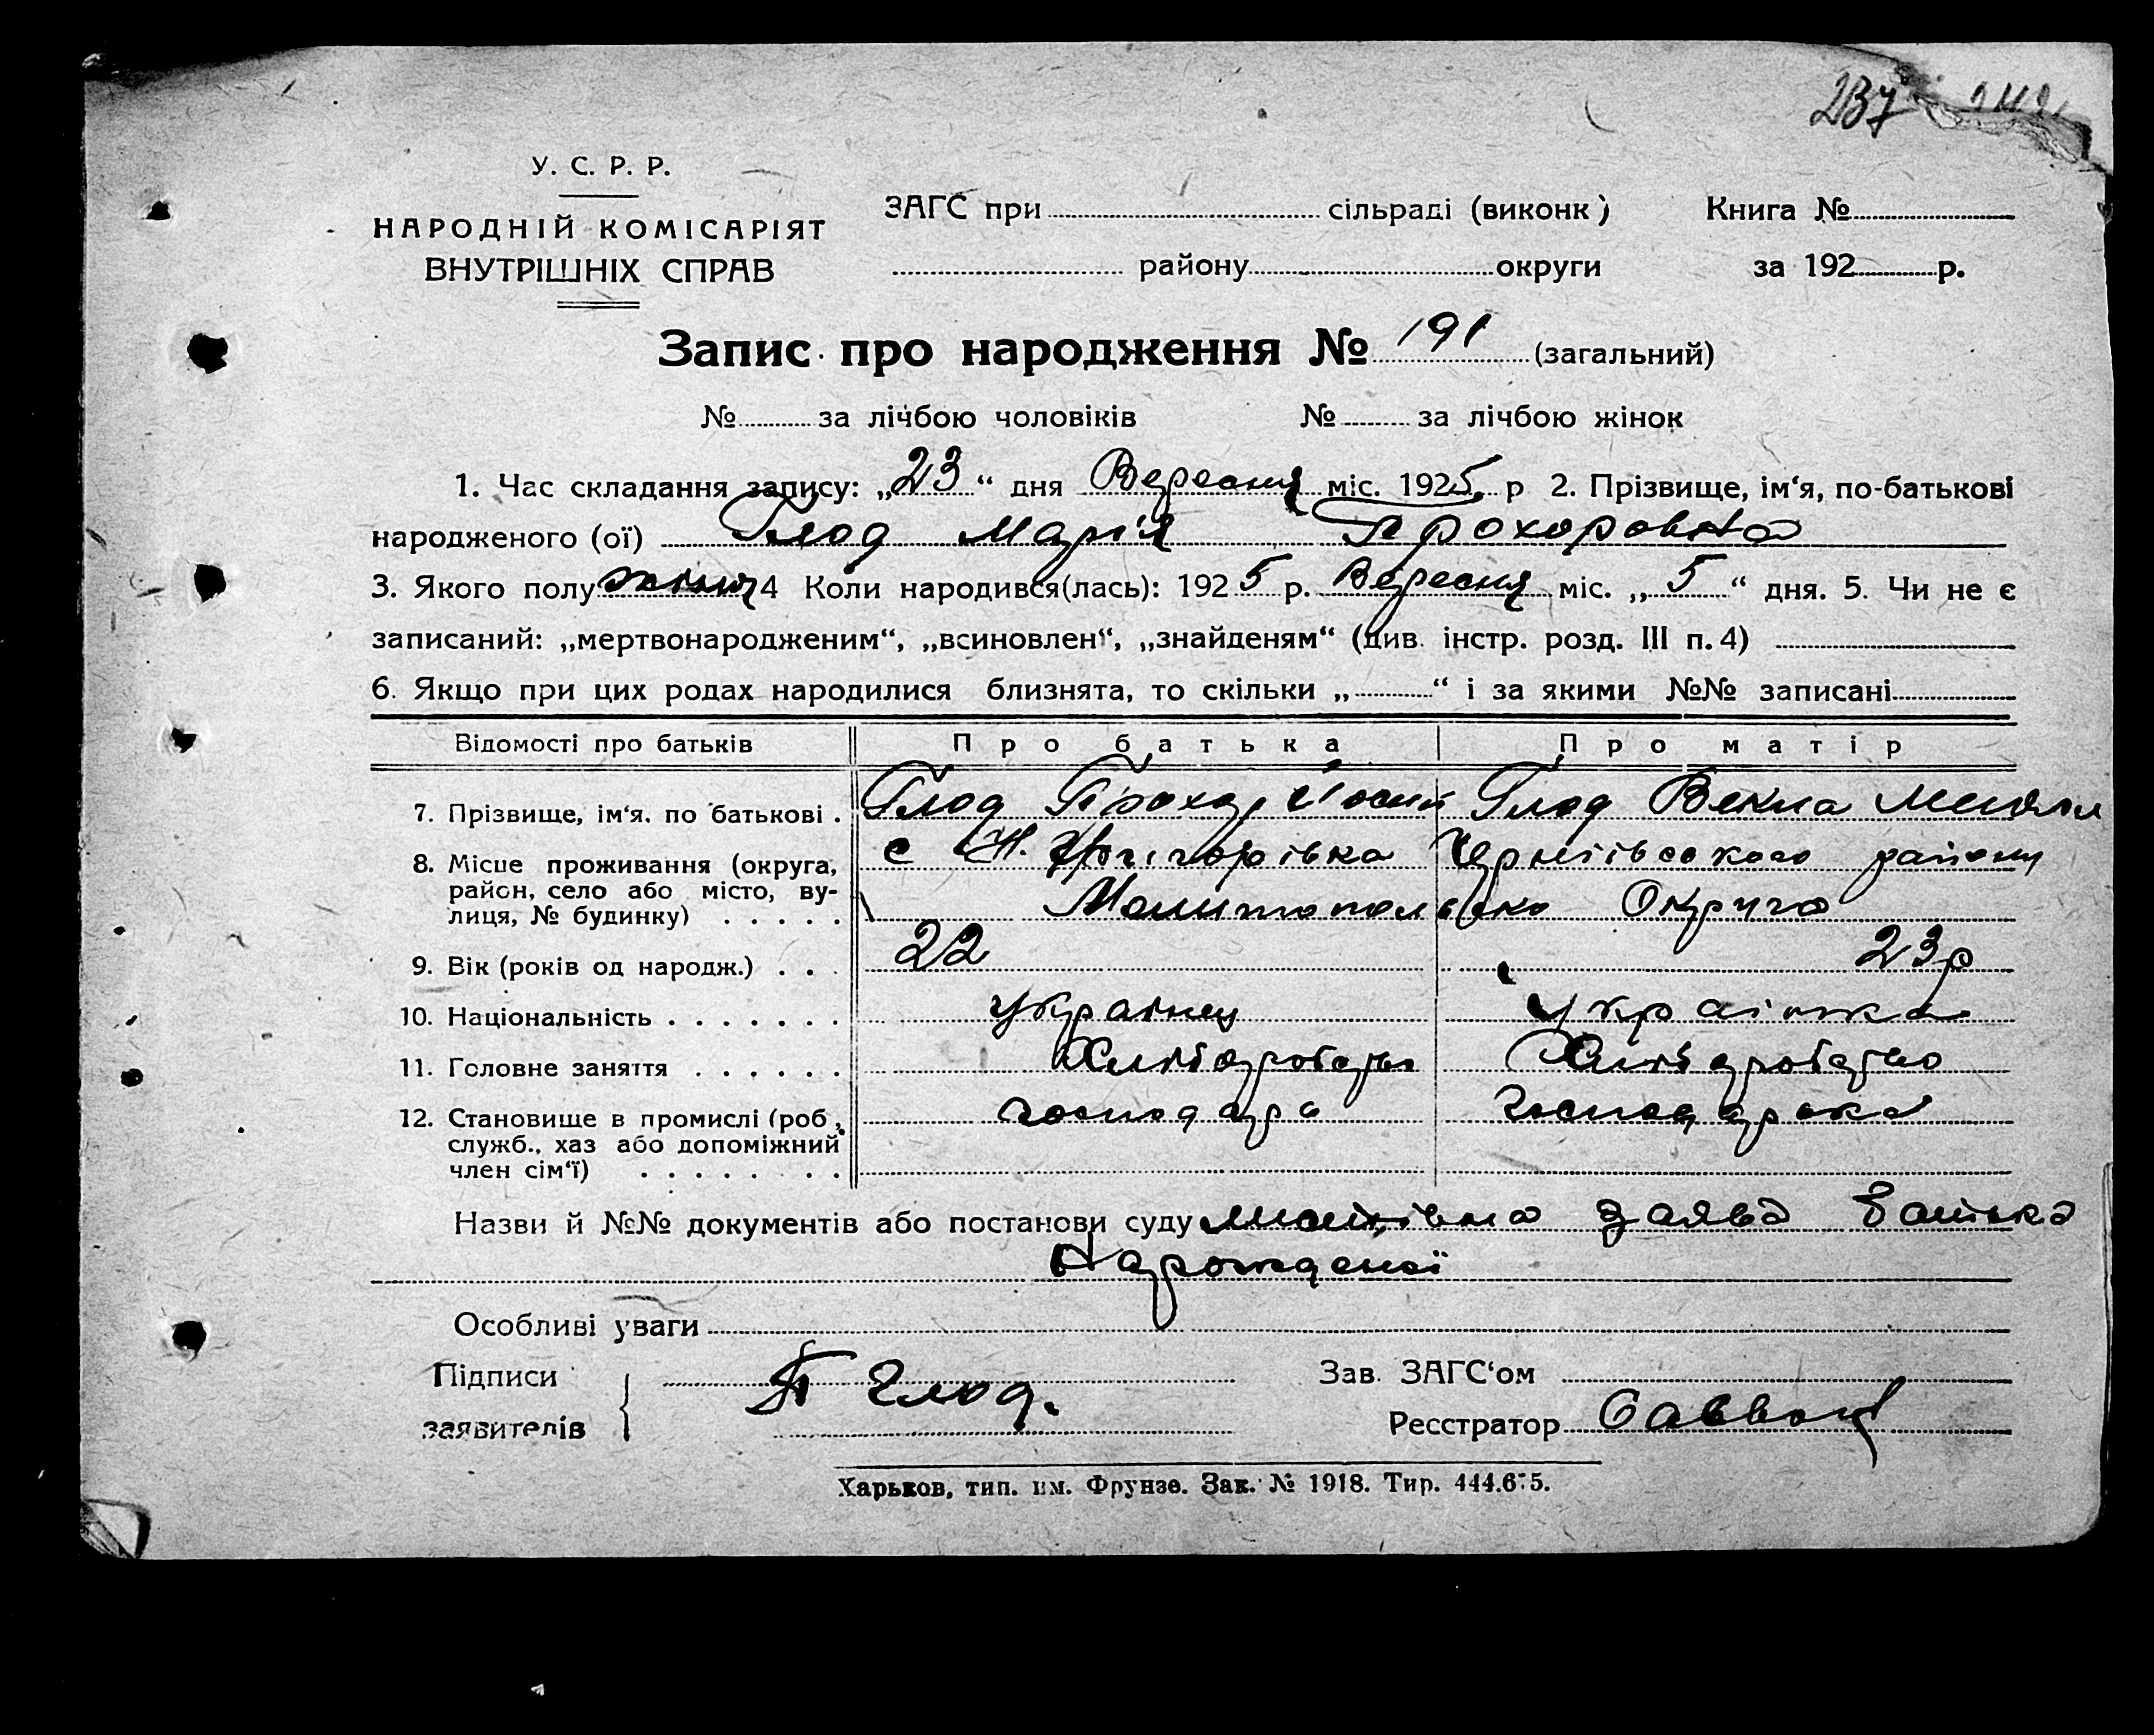 237
У. С. Р. Р.
НАРОДНІЙ КОМІСАРІЯТ
ВНУТРІШНІХ СПРАВ
ЗАГС при сільраді (виконк)
Книга №
району округи
за 192 р.
Запис про народження № 191 (загальний)
№ за лічбою чоловіків № за лічбою жінок
1. Час складання запису: „23“ дня Вересня міс. 1925 р 2. Прізвище, ім‘я, по-батькові
народженого (ої) Глод Марія Прохоровна
3. Якого полу 4 Коли народився(лась): 1925 р. Вересня міс. „5“ дня. 5. Чи не є
записаний: „мертвонародженим“, „всиновлен“, „знайденям“ (див. інстр. розд. III п. 4)
6. Якщо при цих родах народилися близнята, то скільки „ “ і за якими №№ записані
Відомості про батьків Про батька Про матір
7. Прізвище, ім‘я, по батькові . Глод Прохор Йосип Глод Векла
8. Місце проживання (округа, с Н. Григорівка Чернігівського району
район, село або місто, ву- Мелитопольсько Округа
лиця, № будинку) . . . . .
9. Вік (років од народж.) . . . 22 23 р
10. Національність . . . . . . . українец українка
11. Головне заняття . . . . . . Хліборобство Хліборобство
12. Становище в промислі (роб., господарь господарка
служб., хаз або допоміжний
член сім‘ї) . . . . . . .
Назви й №№ документів або постанови суду заява батька
Нарожденої
Особливі уваги
Підписи
заявителів
П Глод.
Зав. ЗАГС‘ом
Реєстратор
Харьков, тип. им. Фрунзе. Зак. № 1918. Тир. 444.675.